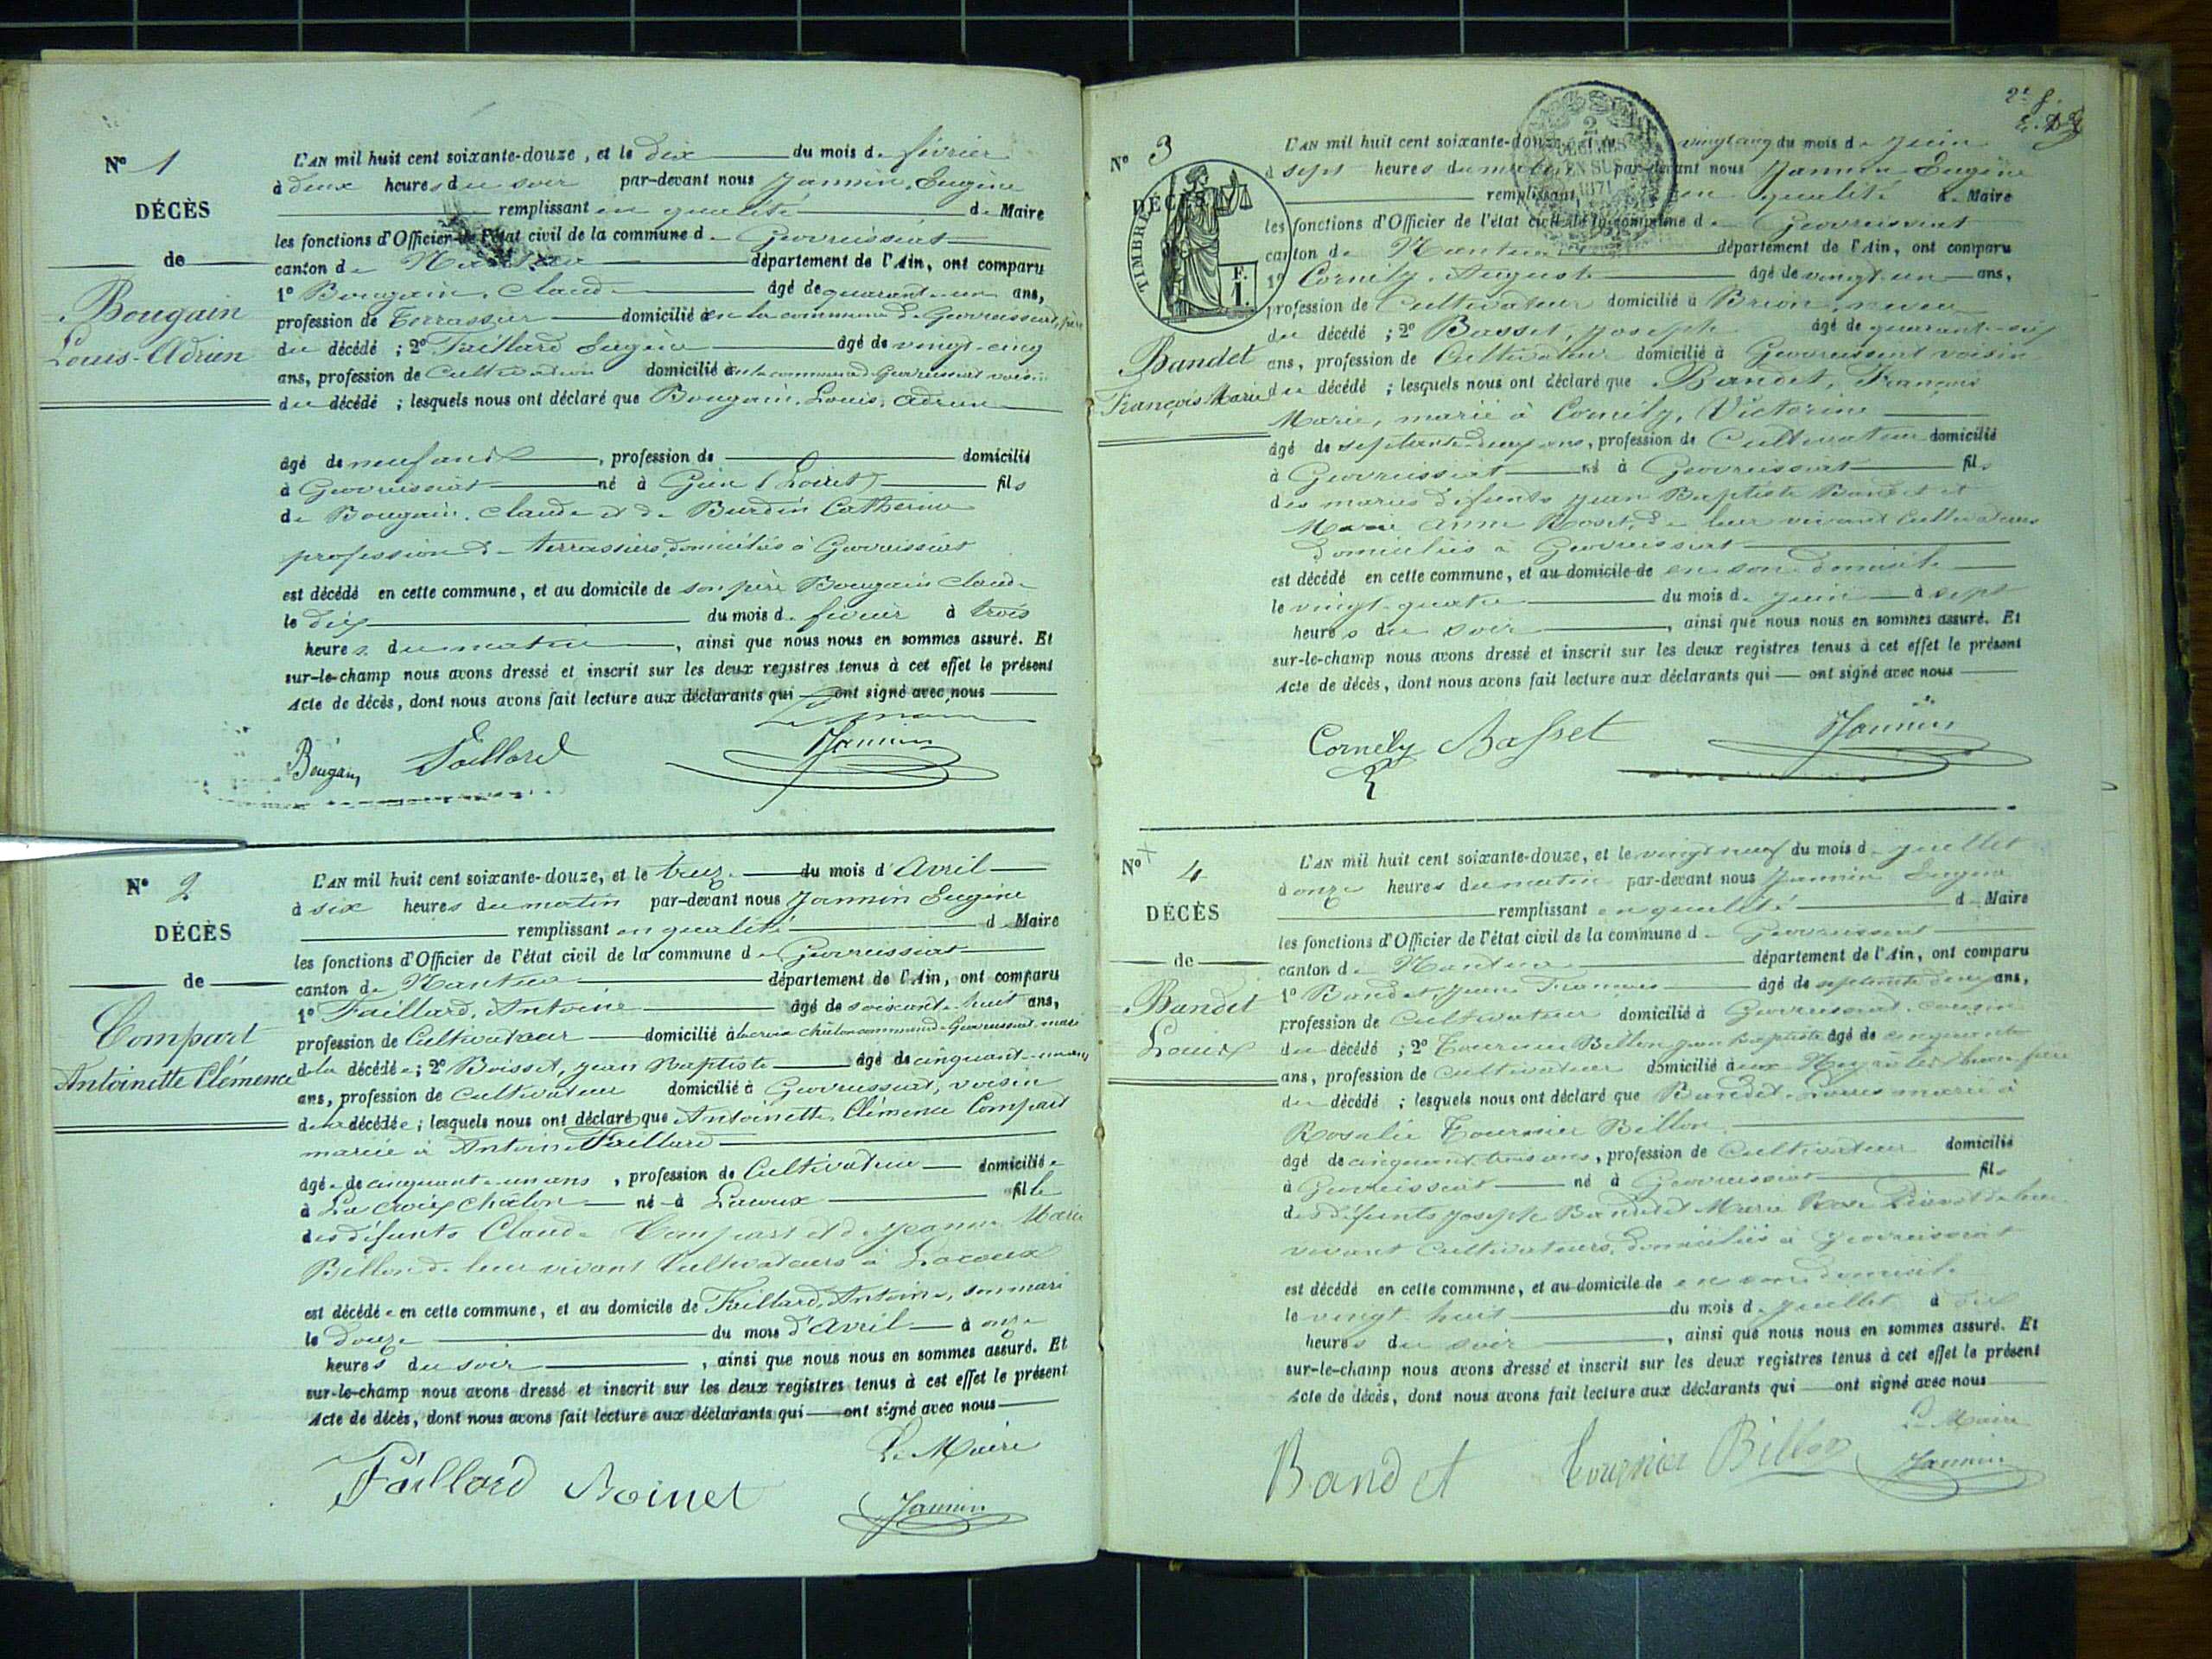 N° 1
DÉCÈS
de
Bougain
Louis-Adrien
L'AN mil huit cent soixante-douze, et le dix du mois de février
à deux heures du soir par-devant nous Jannin, Eugène
remplissant en qualité de Maire
les fonctions d'Officier de l'état civil de la commune de Geovreissiat
canton de Nantua département de l'Ain, ont comparu
1° Bougain, Claude âgé de quarante-un ans,
profession de Terrassier domicilié en la commune de Geovreissiat, père
du décédé ; 2° Faillard Eugène âgé de vingt-cinq
ans, profession de Cultivateur domicilié en la commune de Geovreissiat voisin
du décédé ; lesquels nous ont déclaré que Bougain, Louis, Adrien
âgé de neuf ans, profession de domicilié
à Geovreissiat né à Gien (Loiret) fils
de Bougain, Claude et de Burdin Catherine
profession de terrassiers, domiciliés à Geovreissiat
est décédé en cette commune, et au domicile de son père Bougain Claude
le dix du mois de février à trois
heures du matin, ainsi que nous nous en sommes assuré. Et
sur-le-champ nous avons dressé et inscrit sur les deux registres tenus à cet effet le présent
Acte de décès, dont nous avons fait lecture aux déclarants qui ont signé avec nous
Le Maire
Bougain Faillard Jannin
N° 2
DÉCÈS
de
Compart
Antoinette Clémence
L'AN mil huit cent soixante-douze, et le treize du mois d'Avril
à six heures du matin par-devant nous Jannin Eugène
remplissant en qualité de Maire
les fonctions d'Officier de l'état civil de la commune de Geovreissiat
canton de Nantua département de l'Ain, ont comparu
1° Faillard, Antoine âgé de soixante-huit ans,
profession de Cultivateur domicilié à la croix châlon commune de Geovreissiat mari
de la décédée ; 2° Boisset, Jean Baptiste âgé de cinquante-un ans
ans, profession de Cultivateur domicilié à Geovreissiat, voisin
de la décédée ; lesquels nous ont déclaré que Antoinette, Clémence Compart
mariée à Antoine Faillard
âgée de cinquante-un ans, profession de Cultivateur domiciliée
à La Croix Châlon né à Lacoux fille
des défunts Claude Compart et de Jeanne Marie
Billon de leur vivant Cultivateurs à Lacoux
est décédée en cette commune, et au domicile de Faillard, Antoine, son mari
le douze du mois d'Avril à onze
heures du soir, ainsi que nous nous en sommes assuré. Et
sur-le-champ nous avons dressé et inscrit sur les deux registres tenus à cet effet le présent
Acte de décès, dont nous avons fait lecture aux déclarants qui ont signé avec nous
Le Maire
Faillard Jannin
N° 3
DÉCÈS
TIMBRE
F.
1.
2
1871
Bandet
François Marie
L'AN mil huit cent soixante-douze, et le vingt cinq du mois de Juin
à sept heures du matin par-devant nous Jannin Eugène
remplissant en qualité de Maire
les fonctions d'Officier de l'état civil de la commune de Geovreissiat
canton de Nantua département de l'Ain, ont comparu
1° Cornély, Auguste âgé de vingt-un ans,
profession de Cultivateur domicilié à Brion, neveu
du décédé ; 2° Basset, Joseph âgé de quarante-six
ans, profession de Cultivateur domicilié à Geovreissiat voisin
du décédé ; lesquels nous ont déclaré que Bandet, François
Marie, marié à Cornély, Victorine
âgé de septante-deux ans, profession de Cultivateur domicilié
à Geovreissiat né à Geovreissiat fils
des mariés défunts Jean Baptiste Bandet et
Marie Anne Roset, de leur vivant Cultivateurs
domiciliés à Geovreissiat
est décédé en cette commune, et au domicile de en son domicile
le vingt-quatre du mois de Juin à sept
heures du soir, ainsi que nous nous en sommes assuré. Et
sur-le-champ nous avons dressé et inscrit sur les deux registres tenus à cet effet le présent
Acte de décès, dont nous avons fait lecture aux déclarants qui ont signé avec nous
Cornély Basset Jannin
N° 4
DÉCÈS
de
Bandet
Louis
L'AN mil huit cent soixante-douze, et le vingt neuf du mois de Juillet
à onze heures du matin par-devant nous Jannin Eugène
remplissant en qualité de Maire
les fonctions d'Officier de l'état civil de la commune de Geovreissiat
canton de Nantua département de l'Ain, ont comparu
1° Bandet, Jean François âgé de septante deux ans,
profession de Cultivateur domicilié à Geovreissiat, cousin
du décédé ; 2° Tournier Billon Jean Baptiste âgé de cinquante
ans, profession de Cultivateur domicilié aux Neyrolles beau frère
du décédé ; lesquels nous ont déclaré que Bandet, Louis marié à
Rosalie Tournier Billon
âgé de cinquante trois ans, profession de Cultivateur domicilié
à Geovreissiat né à Geovreissiat fils
des défunts Joseph Bandet et Marie Rose de leur
vivant Cultivateurs, domiciliés à Geovreissiat
est décédé en cette commune, et au domicile de en son domicile
le vingt huit du mois de Juillet à dix
heures du soir, ainsi que nous nous en sommes assuré. Et
sur-le-champ nous avons dressé et inscrit sur les deux registres tenus à cet effet le présent
Acte de décès, dont nous avons fait lecture aux déclarants qui ont signé avec nous
Le Maire
Bandet Tournier Billon Jannin